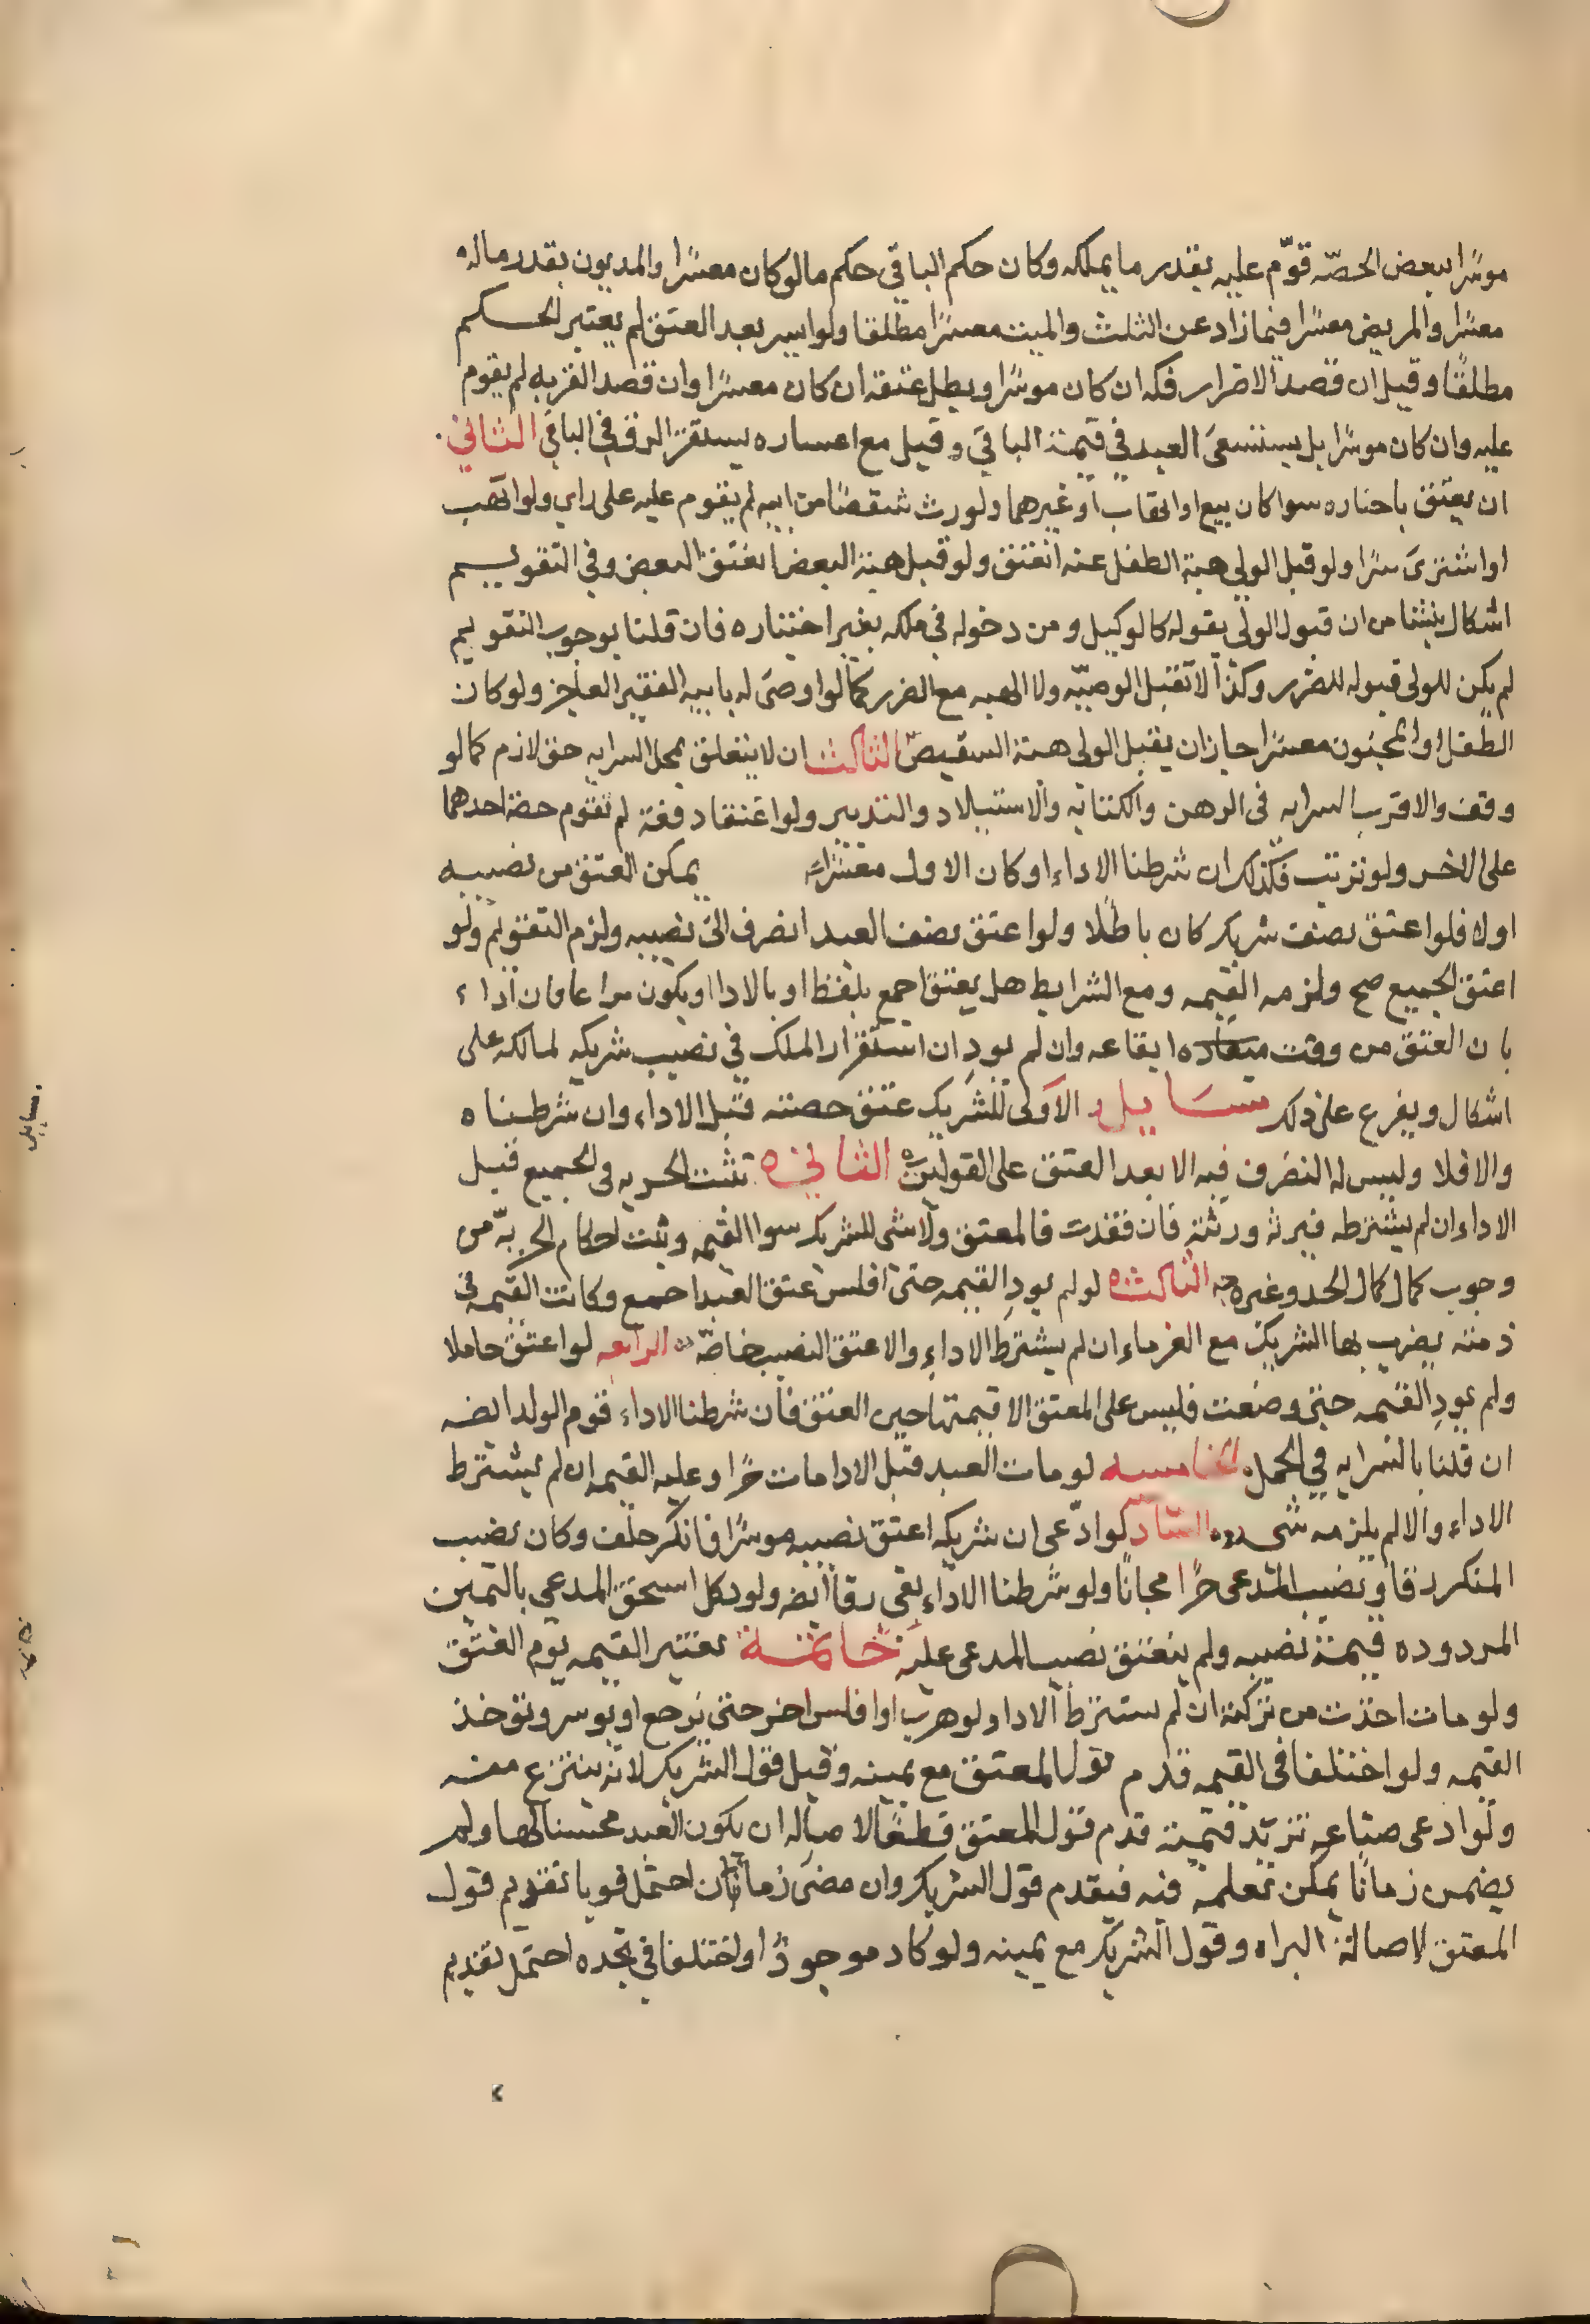 موسرًا ببعض الحصّه قوّم عليه بقدر ما يملكه وكان حكم الباقي حكم ما لو كان معسرًا والمديون بقدر ماله
معسرًا والمريض معسرًا فيما زاد عن الثلث والميت معسرًا مطلقا ولو ايسر بعد العتق لم يعتبر الحكم
مطلقًا وقيل ان قصد الاضرار فكه ان كان موسرًا وبطل عتقه ان كان معسرًا وان قصد القربه لم يقوم
عليه وان كان موسرًا بل يستسعى العبد في قيمة الباقي وقيل مع اعساره يستقر الرق في الباقي الثاني
ان يعتق باختياره سوا كان ببيع او اتهاب او غيرهما ولو ورث شقصًا من ابيه لم يقوم عليه على راي ولو اتهب
او اشترى سرًا ولو قبل الولي هبة الطفل عنه انعتق ولو قبل هبة البعض انعتق البعض وفي التقويم
اشكال ينشا من ان قبول الولي بقوله كالوكيل ومن دخوله في ملكه بغير اختياره فان قلنا بوجوب التقويم
لم يكن للولي قبوله للضرر وكذا لا تقبل الوصيّه ولا الهبه مع الضرر كما لو اوصى له بابيه الفقير العاجز ولو كان
الطفل او المجنون معسرًا جاز ان يقبل الولي هبة الشقيص الثالث ان لا يتعلق بمحل السرايه حق لازم كما لو
وقف والاقرب السرايه في الرهن والكتابه والاستيلاد والتدبير ولو اعتقا دفعة لم تقوم حصة احدهما
على الاخر ولو ترتب فكذلك ان شرطنا الاداء او كان الاول معسرًا يمكن العتق من نصيبه
اولا فلو اعتق نصف شريكه كان باطلا ولو اعتق نصف العبد انصرف الى نصيبه ولزم التقويم ولو
اعتق الجميع صح ولزمه القيمه ومع الشرايط هل يعتق اجمع بلفظ او بالادا او يكون مراعا فان اداء
بان العتق من وقت ايقاعه وان لم يودِ ان استقرار الملك في نصيب شريكه لمالكه على
اشكال ويفرع على ذلك مسايل الاولى للشريك عتق حصته قبل الاداء وان شرطناه
والا فلا وليس له التصرف فيه الا بعد العتق على القولين الثانيه تثبت الحريه في الجميع قبل
الاداء ان لم يشترطه فيرثه ورثته فان فقدت فالمعتق ولا شى للشريك سوا القيمه ويثبت احكام الحريّه من
وجوب كمال كمال الحد وغيره الثالثه لو لم يودِ القيمه حتى افلس عتق العبد اجمع وكانت القيمه في
ذمته يضرب بها الشريك مع الغرماء ان لم يشترط الاداء والا عتق النصيب خاصّه الرابعه لو اعتق حاملا
ولم يودِ القيمه حتى وضعت فليس على المعتق الا قيمتها حين العتق فان شرطنا الاداء قوم الولد ايضه
ان قلنا بالسرايه في الحمل الخامسه لو مات العبد قبل الادا مات حرًا وعليه القيمه ان لم يشترط
الاداء والا لم يلزمه شى السادس لو ادّعى ان شريكه اعتق نصيبه موسرًا فانكر حلف وكان نصيب
المنكر رقا ونصيب المدعى حرًا مجانًا ولو شرطنا الاداء بقى رقا ايضه ولو نكل استحق المدعي باليمين
المردوده قيمة نصيبه ولم ينعتق نصيب المدعى عليه خاتمة تعتبر القيمه يوم العتق
ولو مات اخذت من تركته ان لم يشترط الادا ولو هرب او افلس اخر حتى يرجع او يوسر وتوخذ
القيمه ولو اختلفا في القيمه قدم قول المعتق مع يمينه وقيل قول الشريك لانه ينتزع منه
ولو ادعى صناعه تزيد قيمته قدم قول المعتق قطعًا لاصاله ان يكون العبد محسنا لها ولم
يضمن زمانًا يمكن تعلمه فيه فيقدم قول الشريك وان مضى زمان احتمل قويا تقديم قول
المعتق لاصالة البراه وقول الشريك مع يمينه ولو كان موجودًا واختلفا في تجدده احتمل تقديم
مسايل
خاتمه